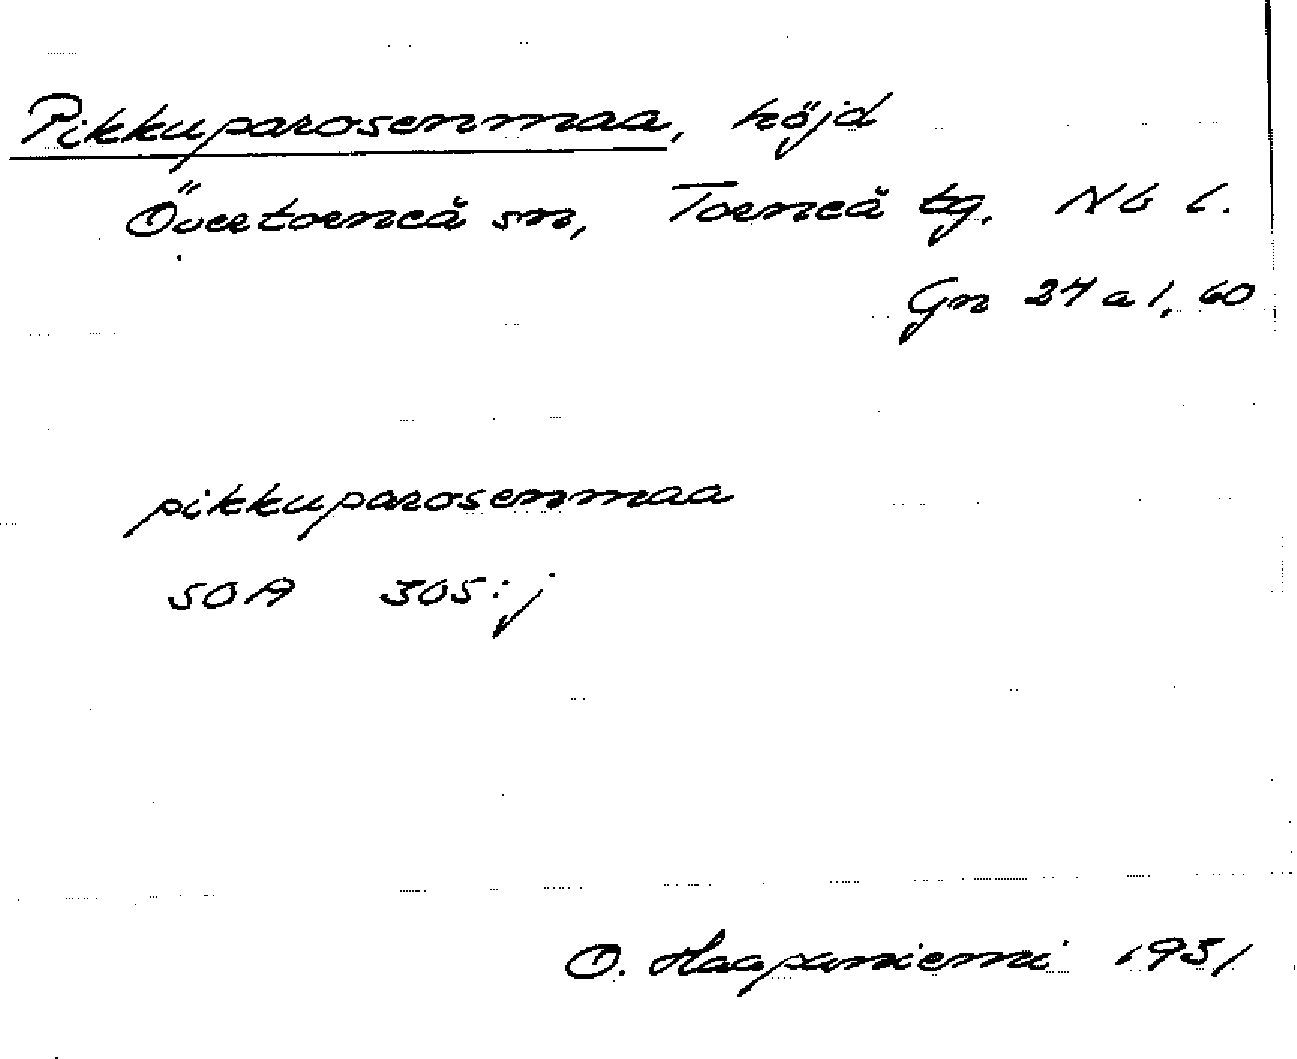 Pikkuparosenmaa, höjd
Övertorneå sn, Torneå tg. Nb l.
Gn 24 a 1, 60
pikkuparosenmaa
SOA 305:j
O. Haapaniemi 1951